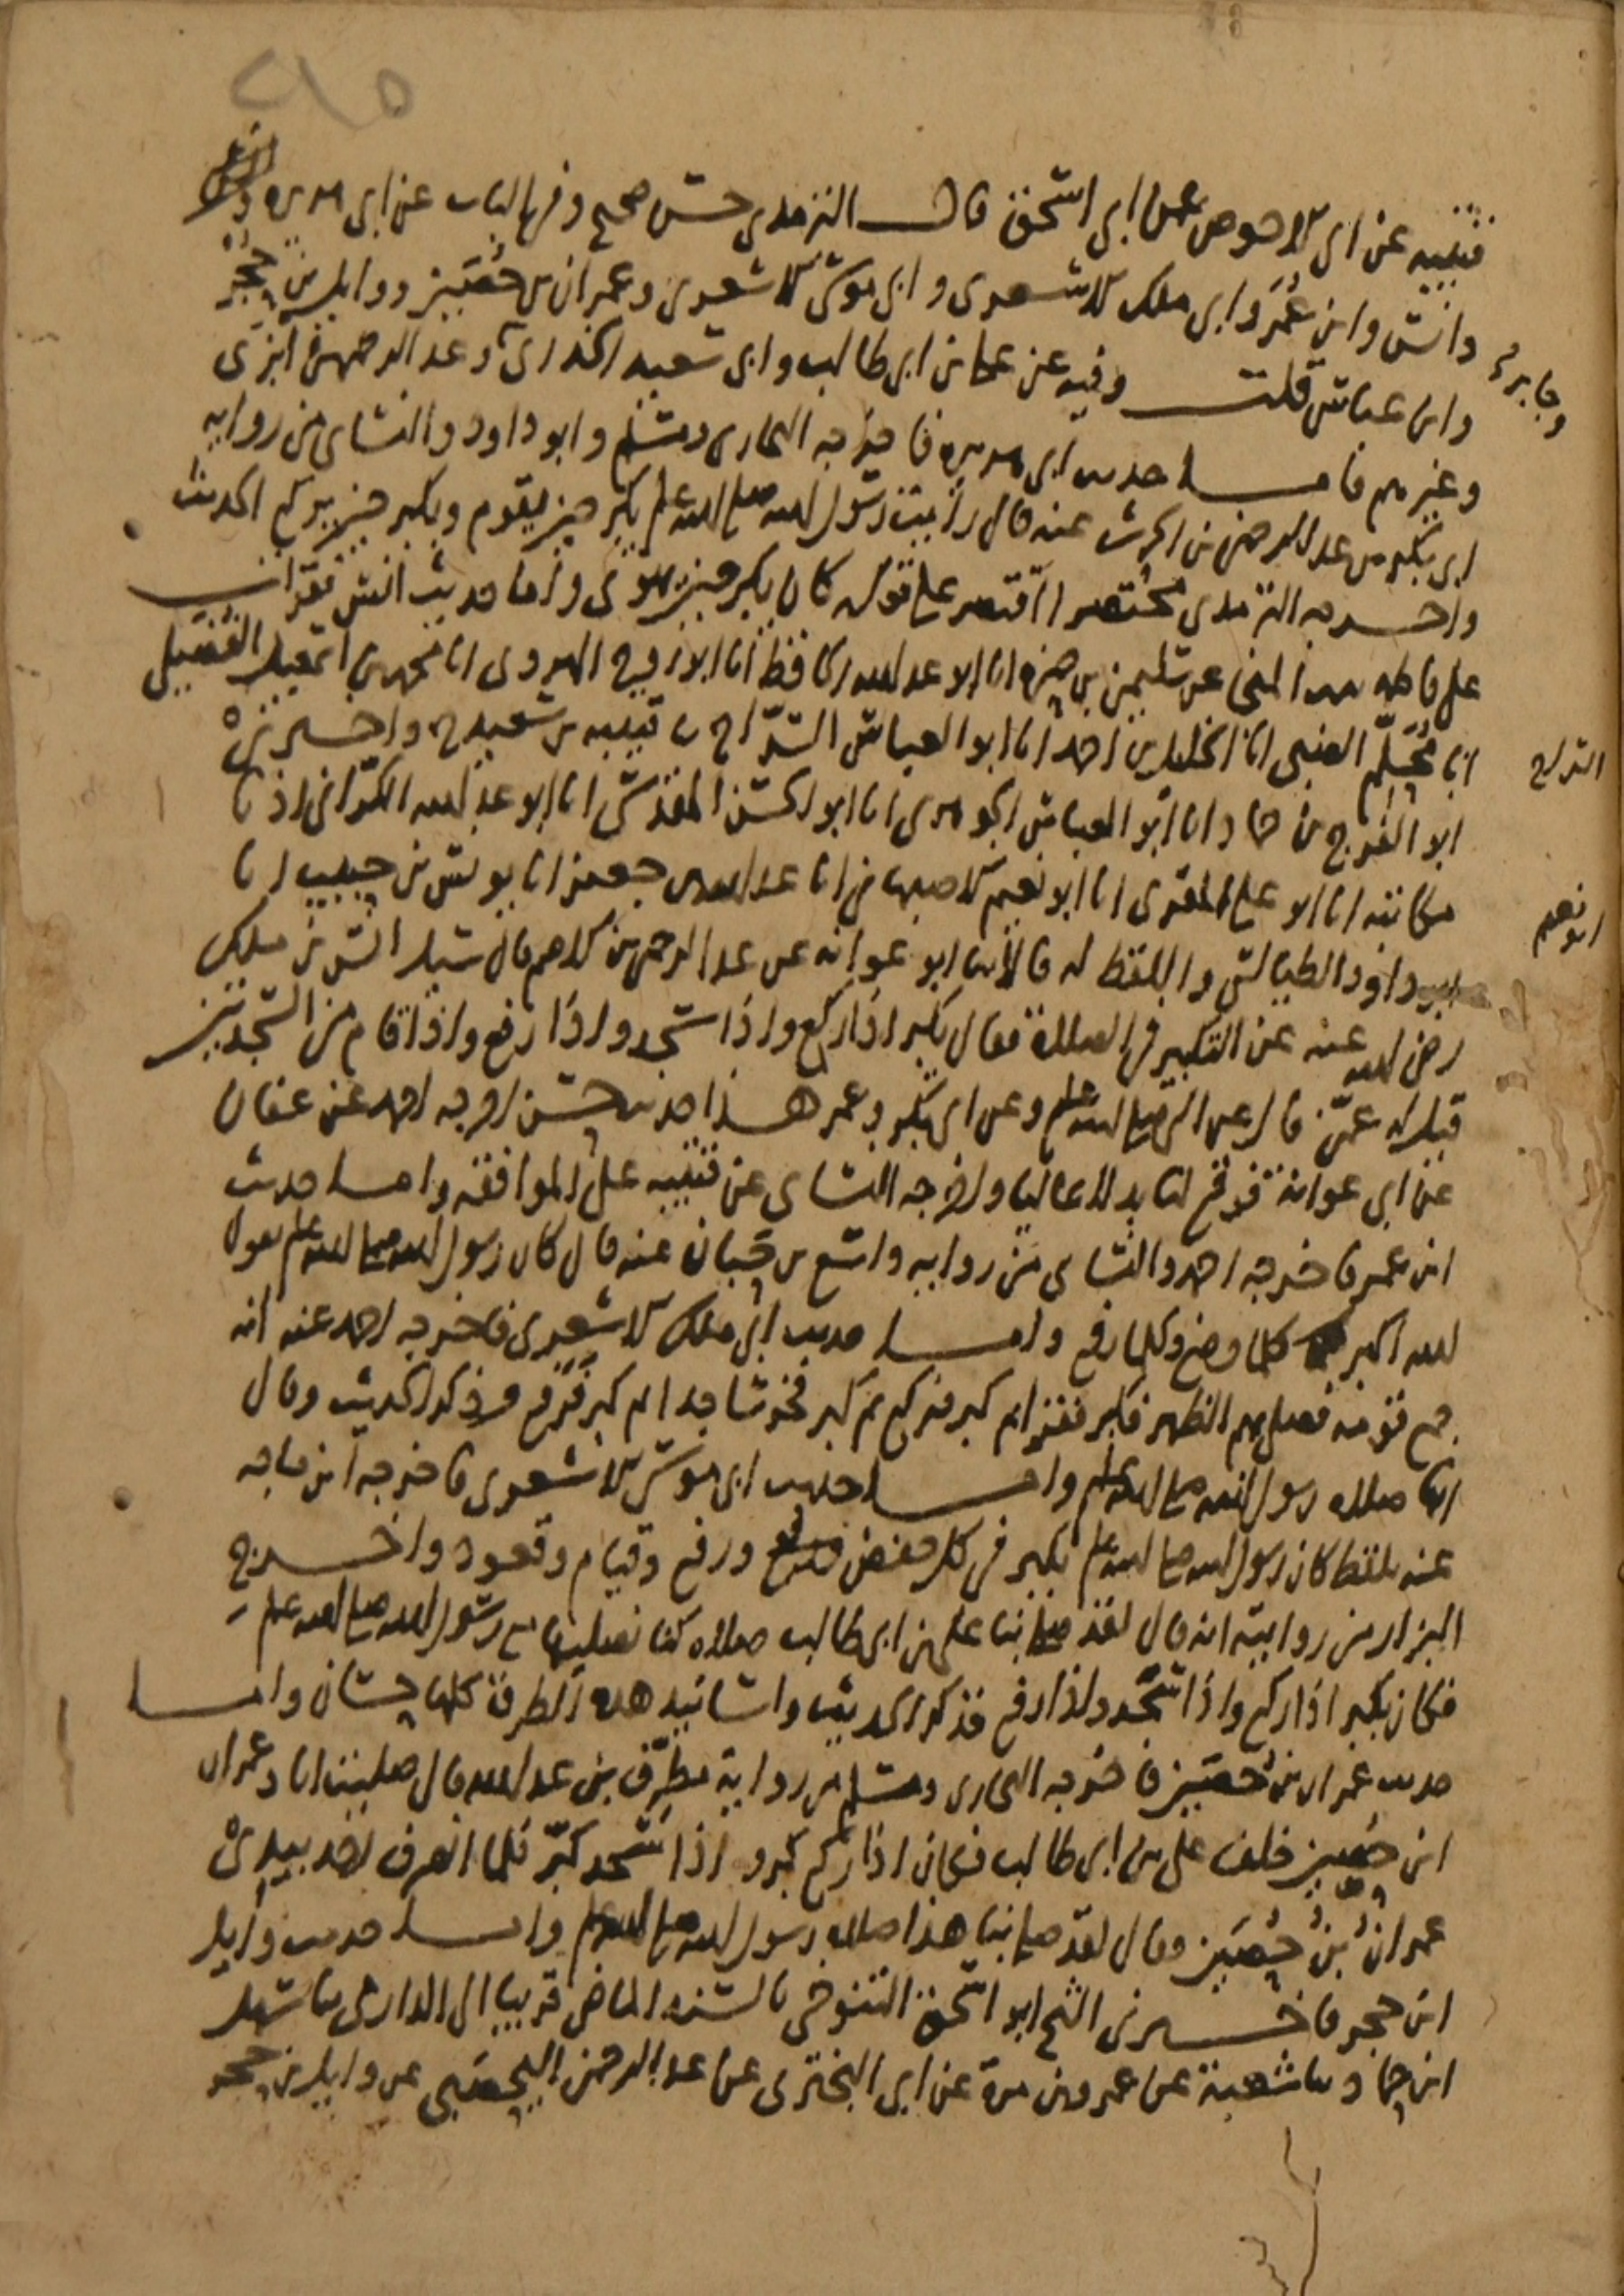 ٢١٥
قتيبة عن ابي الاحوص عن ابي اسحق قال الترمذي حسن صحيح وفي الباب عن ابي هريرة
وانس وابن عمر وابي ملك الاشعري وابي موسى الاشعري وعمران بن حصين ووايل بن حجر
وجابر
وابن عباس قلت وفيه عن علي بن ابي طالب وابي سعيد الخدري وعبد الرحمن بن ابزى
وغيرهم فاما حديث ابي هريرة فاخرجه البخاري ومسلم وابو داود والنساي من رواية
ابي بكر بن عبد الرحمن بن الحرث عنه قال رايت رسول الله صلى الله عليه وسلم يكبر حين يقوم ويكبر حين يركع الحديث
واخرجه الترمذي مختصرا اقتصر على قوله كان يكبر حين يهوي واما حديث انس فقرات
على فاطمة بنت المنجى عن سليمن بن حمزة انا ابو عبد الله الحافظ انا ابو روح الهروي انا محمد بن اسمعيل الفضيلي
انا محلم الضبي انا الخليل بن احمد انا ابو العباس السراج ثنا قتيبة بن سعيد ح واخبرني
السراج
ابو الفرج بن حماد انا ابو العباس الجوهري انا ابو الحسن المقدسي انا ابو عبد الله الكراني اذنا
مكاتبة انا ابو علي المقري انا ابو نعيم الاصبهاني انا عبد الله بن جعفر انا يونس بن حبيب انا
ابو نعيم
ابو داود الطيالسي واللفظ له قالا ثنا ابو عوانة عن عبد الرحمن بن الاصم قال سيل انس بن ملك
رضي الله عنه عن التكبير في الصلاة فقال يكبر اذا ركع واذا سجد واذا رفع واذا قام من السجدتين
قيل له عمن قال عن النبي صلى الله عليه وسلم وعن ابي بكر وعمر هذا حديث حسن اخرجه احمد عن عفان
عن ابي عوانة فوقع لنا بدلا عاليا واخرجه النساي عن قتيبة على الموافقة واما حديث
ابن عمر فاخرجه احمد والنساي من رواية واسع بن حبان عنه قال كان رسول الله صلى الله عليه وسلم يقول
الله اكبر كلما وضع وكلما رفع واما حديث ابي ملك الاشعري فاخرجه احمد عنه انه
جمع قومه فصلى بهم الظهر فكبر فقرا ثم كبر فركع ثم كبر فخر ساجدا ثم كبر فرفع فذكر الحديث وقال
انها صلاة رسول الله صلى الله عليه وسلم واما حديث ابي موسى الاشعري فاخرجه ابن ماجه
عنه بلفظ كان رسول الله صلى الله عليه وسلم يكبر في كل خفض ورفع وقيام وقعود واخرج
البزار من روايته انه قال لقد صلى بنا علي بن ابي طالب صلاة كنا نصليها مع رسول الله صلى الله عليه وسلم
فكان يكبر اذا ركع واذا سجد واذا رفع فذكر الحديث واسانيد هذه الطرق كلها حسان واما
حديث عمران بن حصين فاخرجه البخاري ومسلم من رواية مطرف بن عبد الله قال صليت انا وعمران
ابن حصين خلف علي بن ابي طالب فكان اذا ركع كبر واذا سجد كبر فلما انصرف اخذ بيدي
عمران بن حصين وقال لقد صلى بنا هذا صلاة رسول الله صلى الله عليه وسلم واما حديث وايل
ابن حجر فاخبرني الشيخ ابو اسحق التنوخي بالسند الماضي قريبا الى الدارمي ثنا سهل
ابن حماد ثنا شعبة عن عمرو بن مرة عن ابي البختري عن عبد الرحمن اليحصبي عن وايل بن حجر